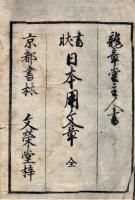 龍章堂主人書
書牘
日本用文章 全
京都書林 文榮堂梓